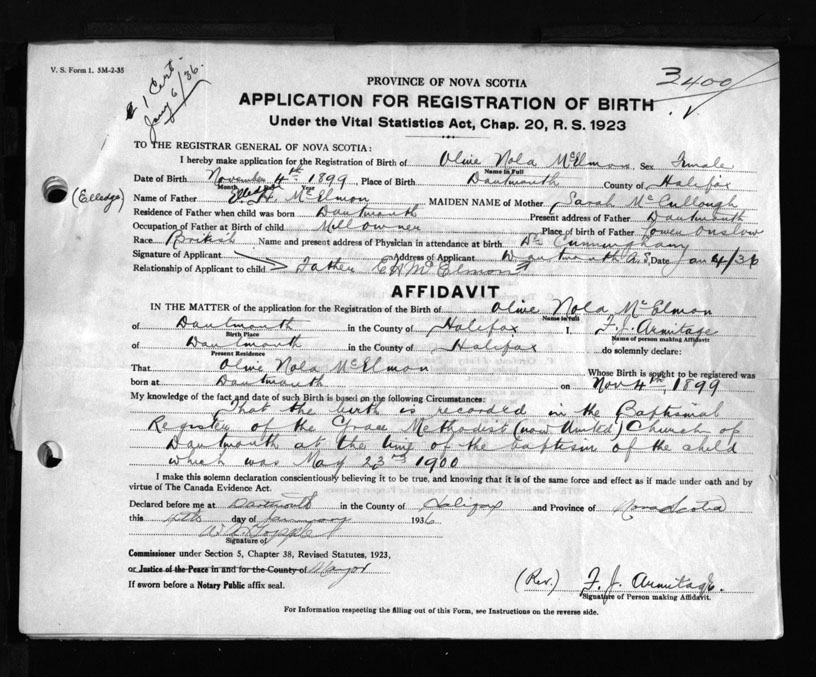 V. S. Form 1. 5M-2-35
1 Cert.
Jany 6/36.
3400
PROVINCE OF NOVA SCOTIA
APPLICATION FOR REGISTRATION OF BIRTH
Under the Vital Statistics Act, Chap. 20, R. S. 1923
TO THE REGISTRAR GENERAL OF NOVA SCOTIA:
I hereby make application for the Registration of Birth of Olive Nola McElmon, Sex Female
Name in Full
Date of Birth November 4th 1899, Place of Birth Dartmouth County of Halifax
Month Year
(Elledge) Elledge
Name of Father E. H. McElmon MAIDEN NAME of Mother Sarah McCullough
Residence of Father when child was born Dartmouth Present address of Father Dartmouth
Occupation of Father at Birth of child Mill owner Place of birth of Father Lower Onslow
Race British Name and present address of Physician in attendance at birth Dr Cunningham
Signature of Applicant Address of Applicant Dartmouth N.S. Date Jan 4/36
Relationship of Applicant to child Father E H McElmon
AFFIDAVIT
IN THE MATTER of the application for the Registration of the Birth of Olive Nola McElmon
Name in Full
of Dartmouth in the County of Halifax I, F. J. Armitage
Birth Place Name of person making Affidavit
of Dartmouth in the County of Halifax do solemnly declare:
Present Residence
That Olive Nola McElmon Whose Birth is sought to be registered was
born at Dartmouth on Nov 4th, 1899
My knowledge of the fact and date of such Birth is based on the following Circumstances:
That the birth is recorded in the Baptismal
Register of the Grace Methodist (now United) Church of
Dartmouth at the time of the baptism of the child
which was May 23rd 1900
I make this solemn declaration conscientiously believing it to be true, and knowing that it is of the same force and effect as if made under oath and by
virtue of The Canada Evidence Act.
Declared before me at Dartmouth in the County of Halifax and Province of Nova Scotia
this day of January 1936
Signature of
Commissioner under Section 5, Chapter 38, Revised Statutes, 1923,
or Justice of the Peace in and for the County of Mayor
If sworn before a Notary Public affix seal.
(Rev.) F. J. Armitage.
Signature of Person making Affidavit.
For Information respecting the filling out of this Form, see Instructions on the reverse side.